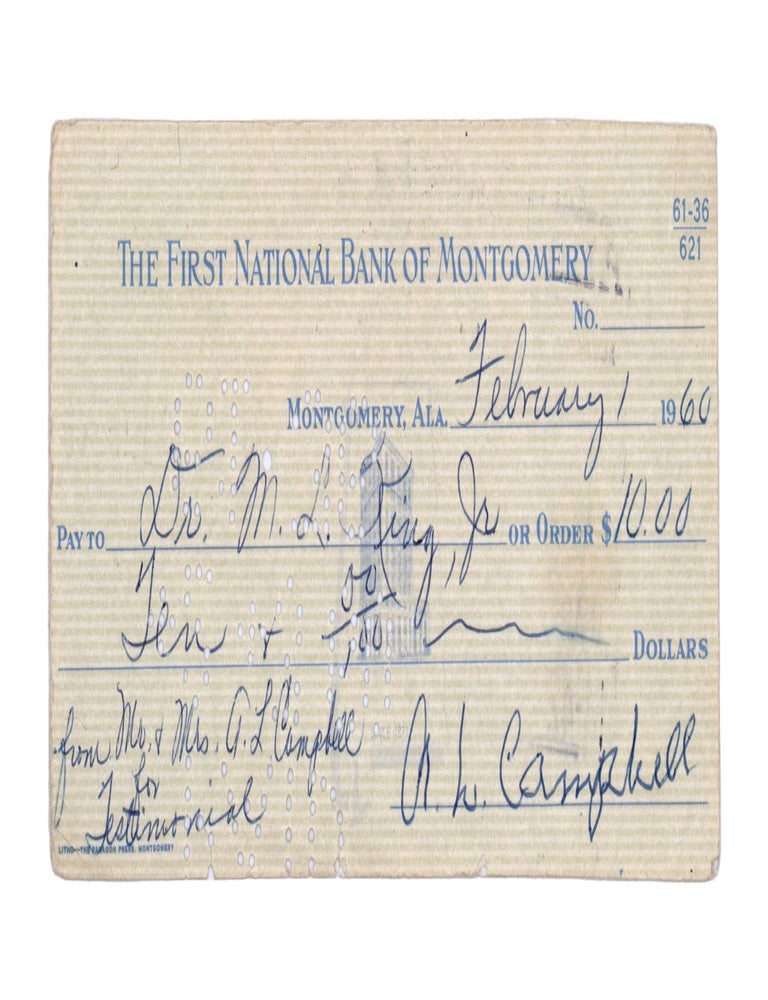 61-36
621
THE FIRST NATIONAL BANK OF MONTGOMERY
No.
MONTGOMERY, ALA. February 1 1960
PAY TO Dr. M. L. King, Jr OR ORDER $10.00
Ten & 00/100 DOLLARS
from Mr. & Mrs. A. L Campbell
for
Testimonial
A. L. Campbell
LITHO—THE PARAGON PRESS, MONTGOMERY